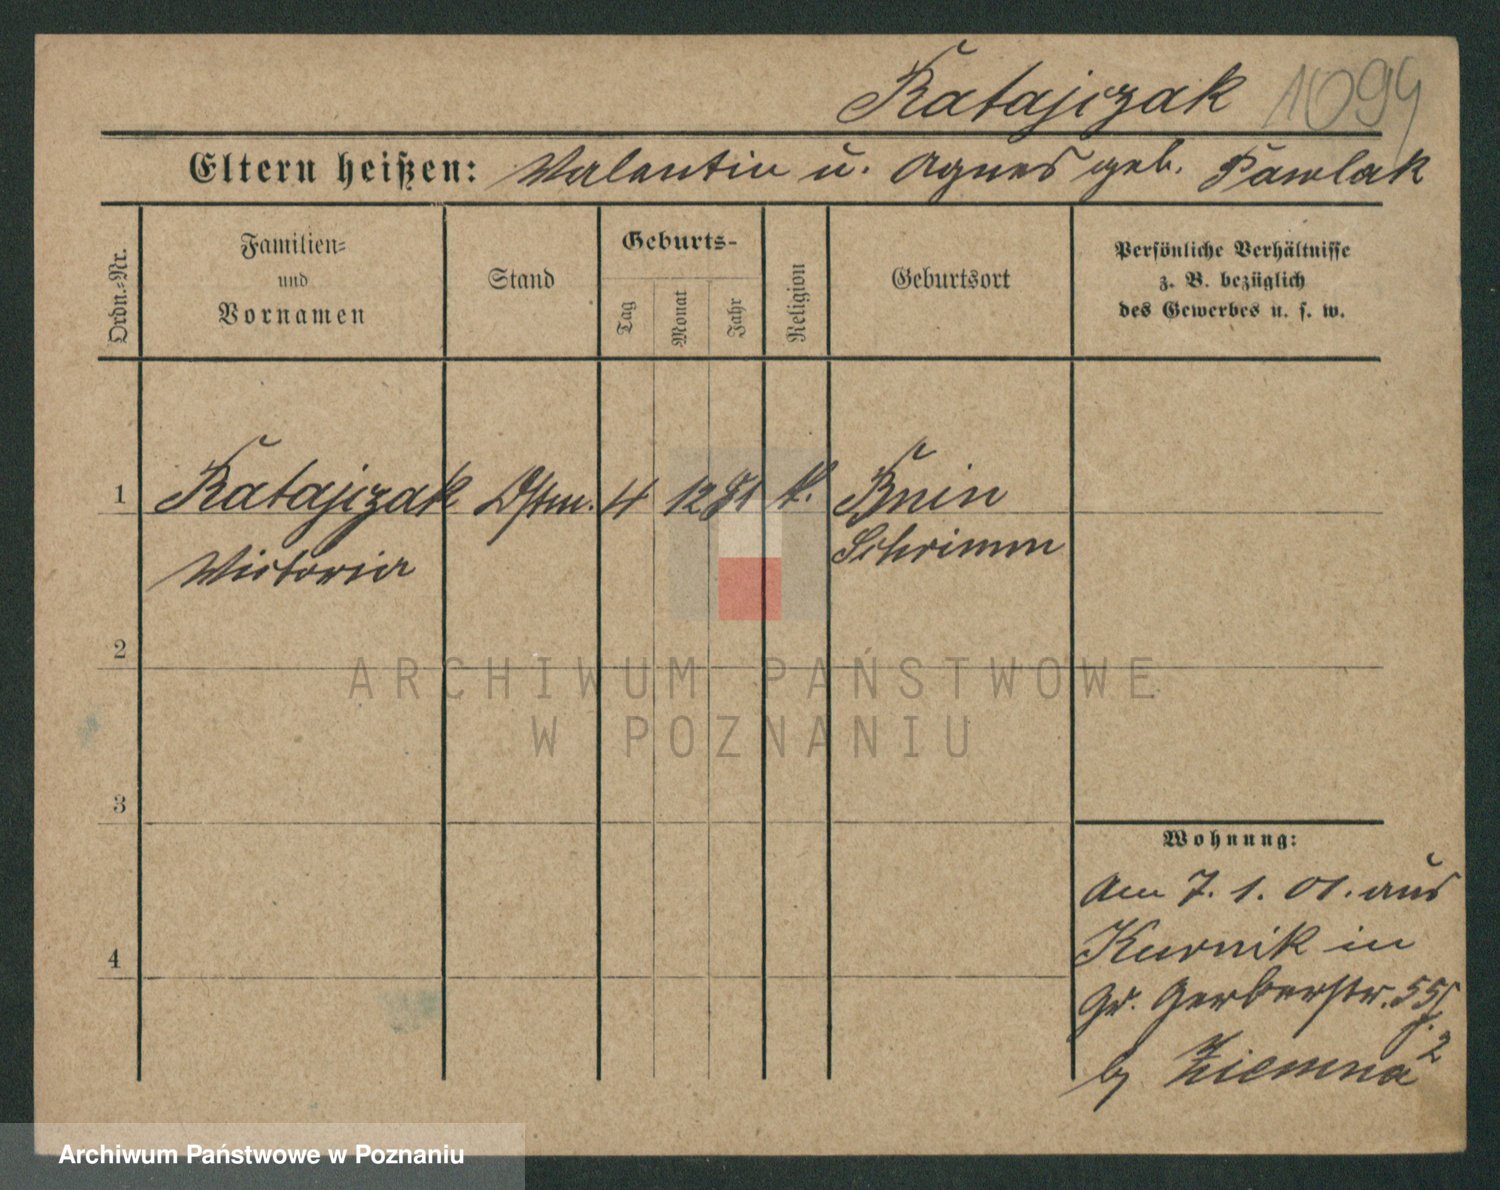 Ratajczak 1094
Eltern heißen: Valentin u. Agnes geb. Pawlak
Ordn.-Nr.
Familien-
und
Vornamen
Stand
Geburts-
Tag
Monat
Jahr
Religion
Geburtsort
Persönliche Verhältnisse
z. B. bezüglich
des Gewerbes u. s. w.
1 Ratajczak Dstm. 4 12 81 k. Bnin
Victoria Schrimm
2
3
4
Wohnung:
Am 7. 1. 01. aus
Kurnik in
Gr. Gerberstr. 55
b/ Ziemna
ARCHIWUM PAŃSTWOWE
W POZNANIU
Archiwum Państwowe w Poznaniu